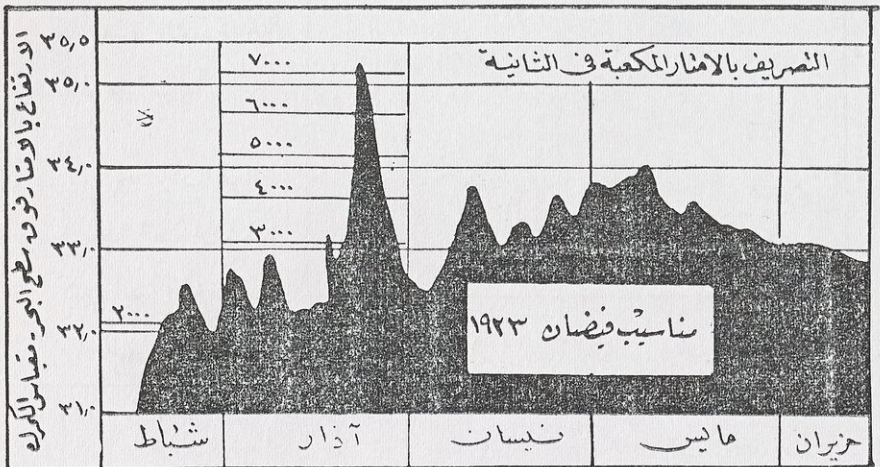 الارتفاع بالامتار فوق سطح البحر - مقياس الكرك
٣٥,٥
٣٥,٠
٣٤,٠
٣٣,٠
٣٢,٠
٣١,٠
التصريف بالامتار المكعبة فى الثانية
٧٠٠٠
٦٠٠٠
٥٠٠٠
٤٠٠٠
٣٠٠٠
٢٠٠٠
مناسيب فيضان ١٩٢٣
شباط
آذار
نيسان
مايس
حزيران